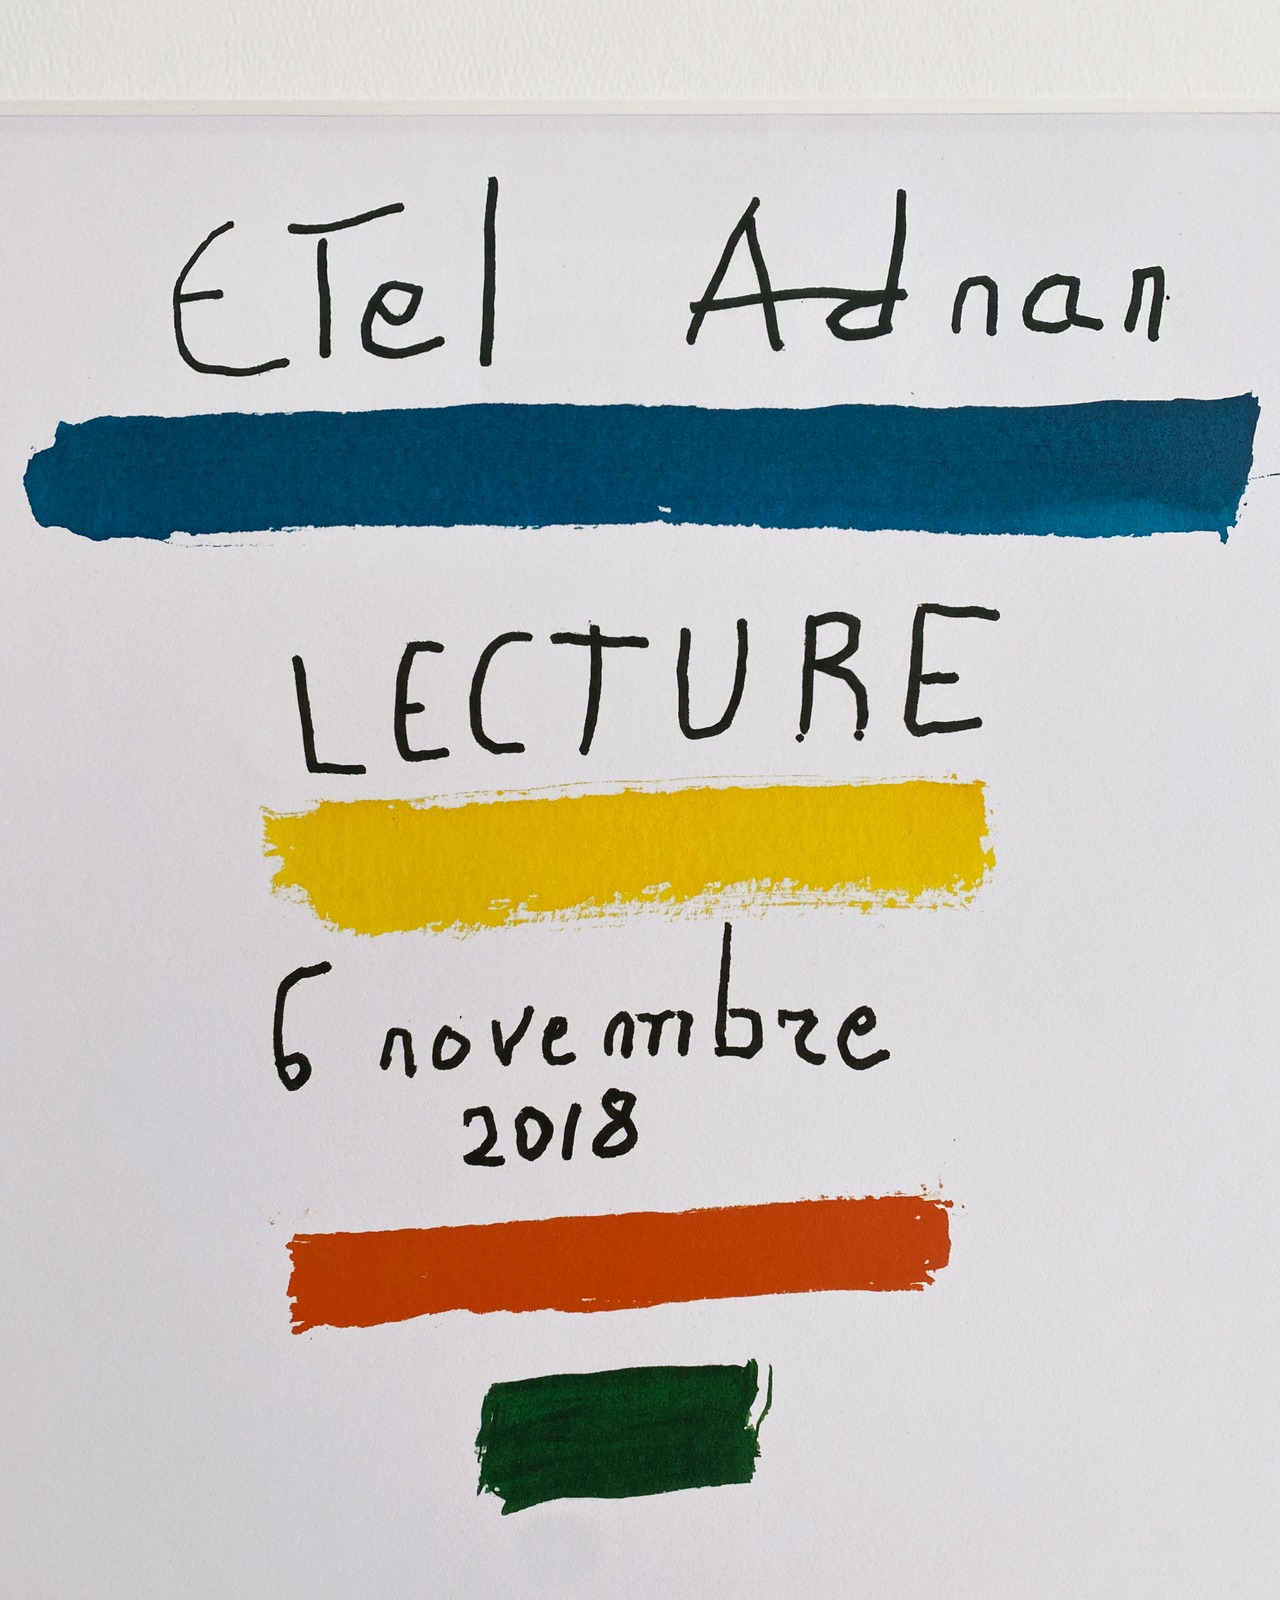 ETel Adnan
LECTURE
6 novembre
2018